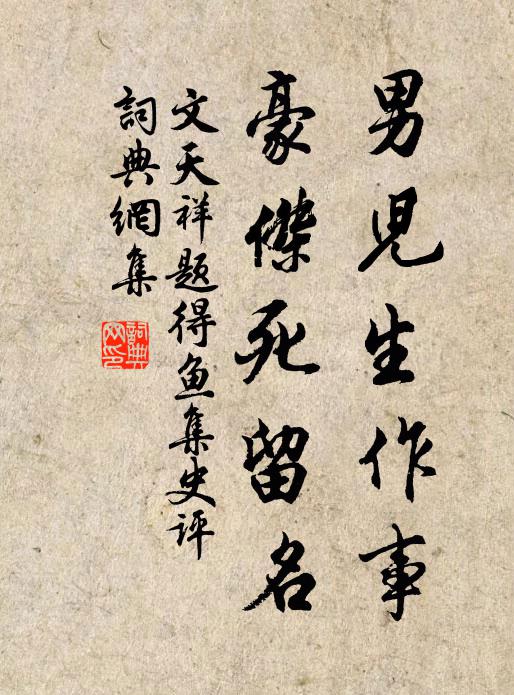 男児生作事
豪傑死留名
文天祥题得魚集史评
詞典網集
詞典網印